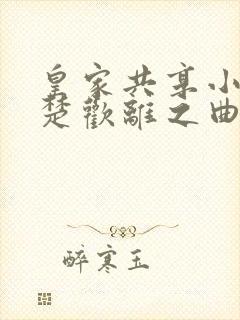 皇家共享小
楚歡離之曲
醉寒玉